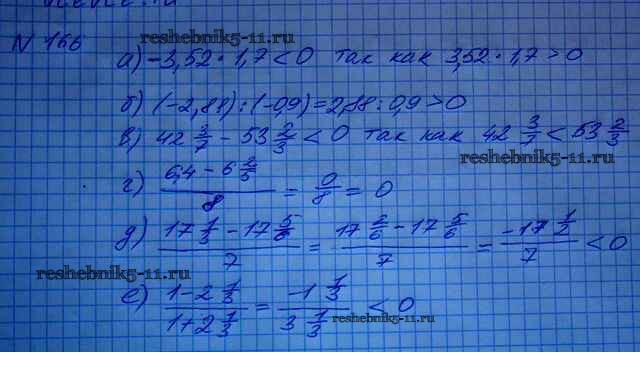 reshebnik5-11.ru
N 166
а) -3,52 · 1,7 < 0 так как 3,52 · 1,7 > 0
б) (-2,88) : (-0,9) = 2,88 : 0,9 > 0
в) 42 3/7 - 53 2/3 < 0 так как 42 3/7 < 53 2/3
reshebnik5-11.ru
г) (6,4 - 6 2/5)/8 = 0/8 = 0
д) (17 1/3 - 17 5/6)/7 = (17 2/6 - 17 5/6)/7 = (-17 1/2)/7 < 0
reshebnik5-11.ru
е) (1 - 2 1/3)/(1 + 2 1/3) = (-1 1/3)/(3 1/3) < 0
reshebnik5-11.ru